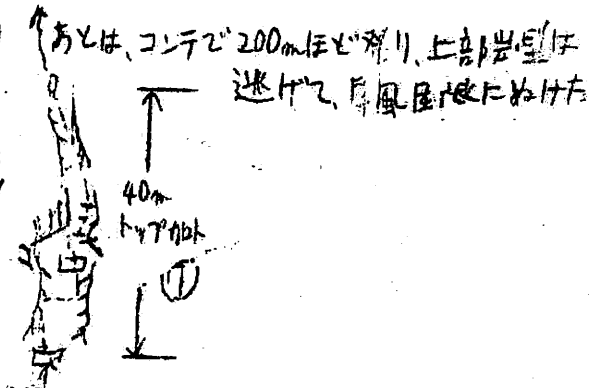 あとは、コンテで200mほど登り、上部岩壁は
逃げて、屏風尾根にぬけた
40m
トップカロト
T